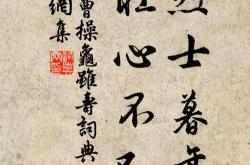 烈士暮年
壮心不已
曹操龜雖壽詞典
網集